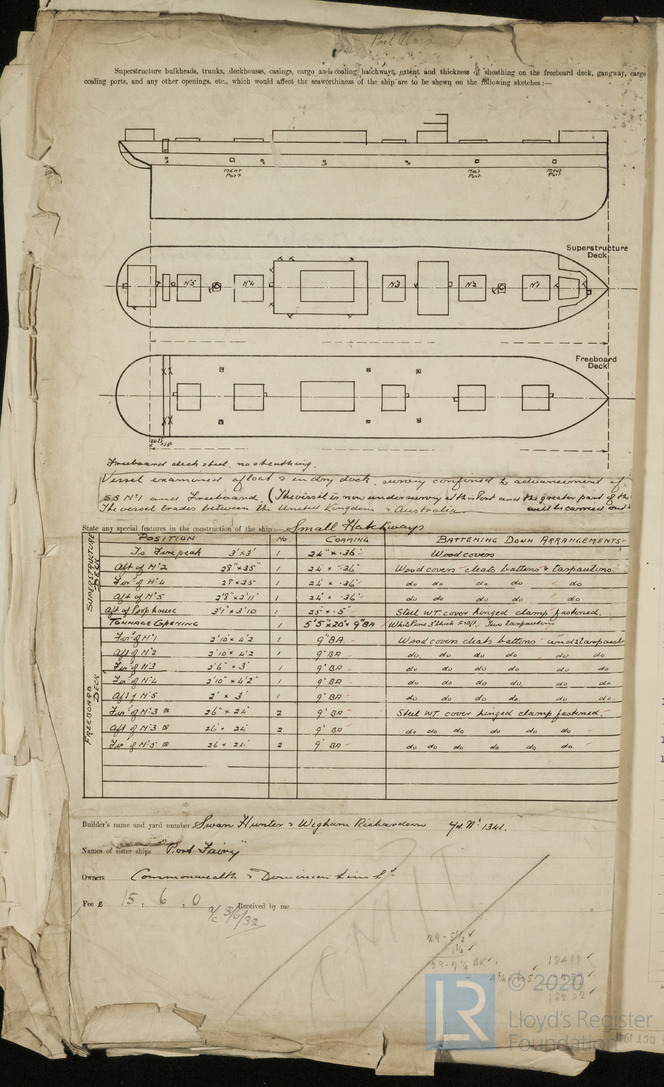 Superstructure bulkheads, trunks, deckhouses, casings, cargo and coaling hatchways, extent and thickness of sheathing on the freeboard deck, gangway, cargo
coaling ports, and any other openings, etc., which would affect the seaworthiness of the ship are to be shewn on the following sketches :—
Superstructure
Deck
Nº5 Nº4 Nº3 Nº2 Nº1
Freeboard
Deck
Freeboard deck steel, no sheathing.
Vessel examined afloat & in dry dock, survey confined to advancement of
S.S Nº1 and Freeboard. (The vessel is now under survey at this Port and the greater part of the
The vessel trades between the United Kingdom & Australia will be carried out
State any special features in the construction of the ship:— Small Hatchways
POSITION No. COAMING BATTENING DOWN ARRANGEMENTS
SUPERSTRUCTURE DECK
To Forepeak 3'×3' 1 24" × .36" Wood covers
Aft of Nº2 28"×35" 1 24 × .36" Wood covers cleats battens & tarpaulins
For'd Nº4 28×35" 1 24 × .36" do do do do do
Aft of Nº5 2'8"×2'11" 1 24 × .36" do do do do do
Aft of Poop house 3'1"×3'10 1 25 × .5" Steel W.T. cover hinged clamp fastened.
TONNAGE OPENING 5'5"×20×9"BA
FREEBOARD DECK
For'd Nº1 2'10×4'2 1 9"BA Wood covers cleats battens and 2 tarpaul
Aft of Nº2 2'10"×4'2 1 9"BA do do do do do
For'd Nº3 2'6"×3' 1 9"BA do do do do do
For'd Nº4 2'10"×4'2" 1 9"BA do do do do do
Aft of Nº5 2'×3' 1 9"BA do do do do do
For'd Nº3 26"×24" 2 9"BA Steel W.T. cover hinged clamp fastened.
Aft of Nº3 26"×24" 2 9"BA do do do do do do
For'd Nº5 26×24" 2 9"BA do do do do do do
Builder's name and yard number Swan Hunter & Wigham Richardson Yd. Nº 1341.
Names of sister ships "Port Fairy"
Owners Commonwealth & Dominion Line Ld.
Fee £ 15 . 6 . 0 Received by me
© 2020
LR
Lloyd's Register
Foundation